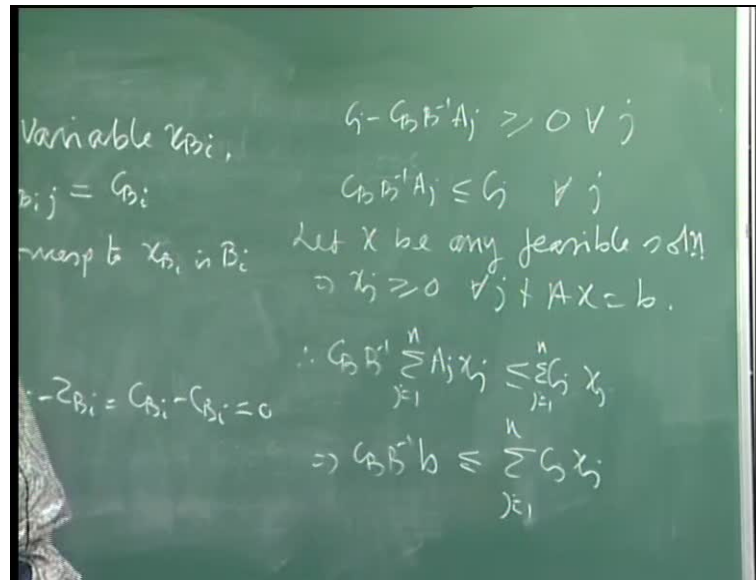 variable x_{Bi},
_{Bi}j = C_{Bi}
x_{Bi} is B_i
- Z_{Bi} = C_{Bi} - C_{Bi} = 0
C_j - C_B B^{-1} A_j ≥ 0 ∀ j
C_B B^{-1} A_j ≤ C_j ∀ j
Let X be any feasible soln
⇒ x_j ≥ 0 ∀ j + AX = b.
∴ C_B B^{-1} \sum_{j=1}^{n} A_j x_j ≤ \sum_{j=1}^{n} C_j x_j
⇒ C_B B^{-1} b ≤ \sum_{j=1}^{n} C_j x_j